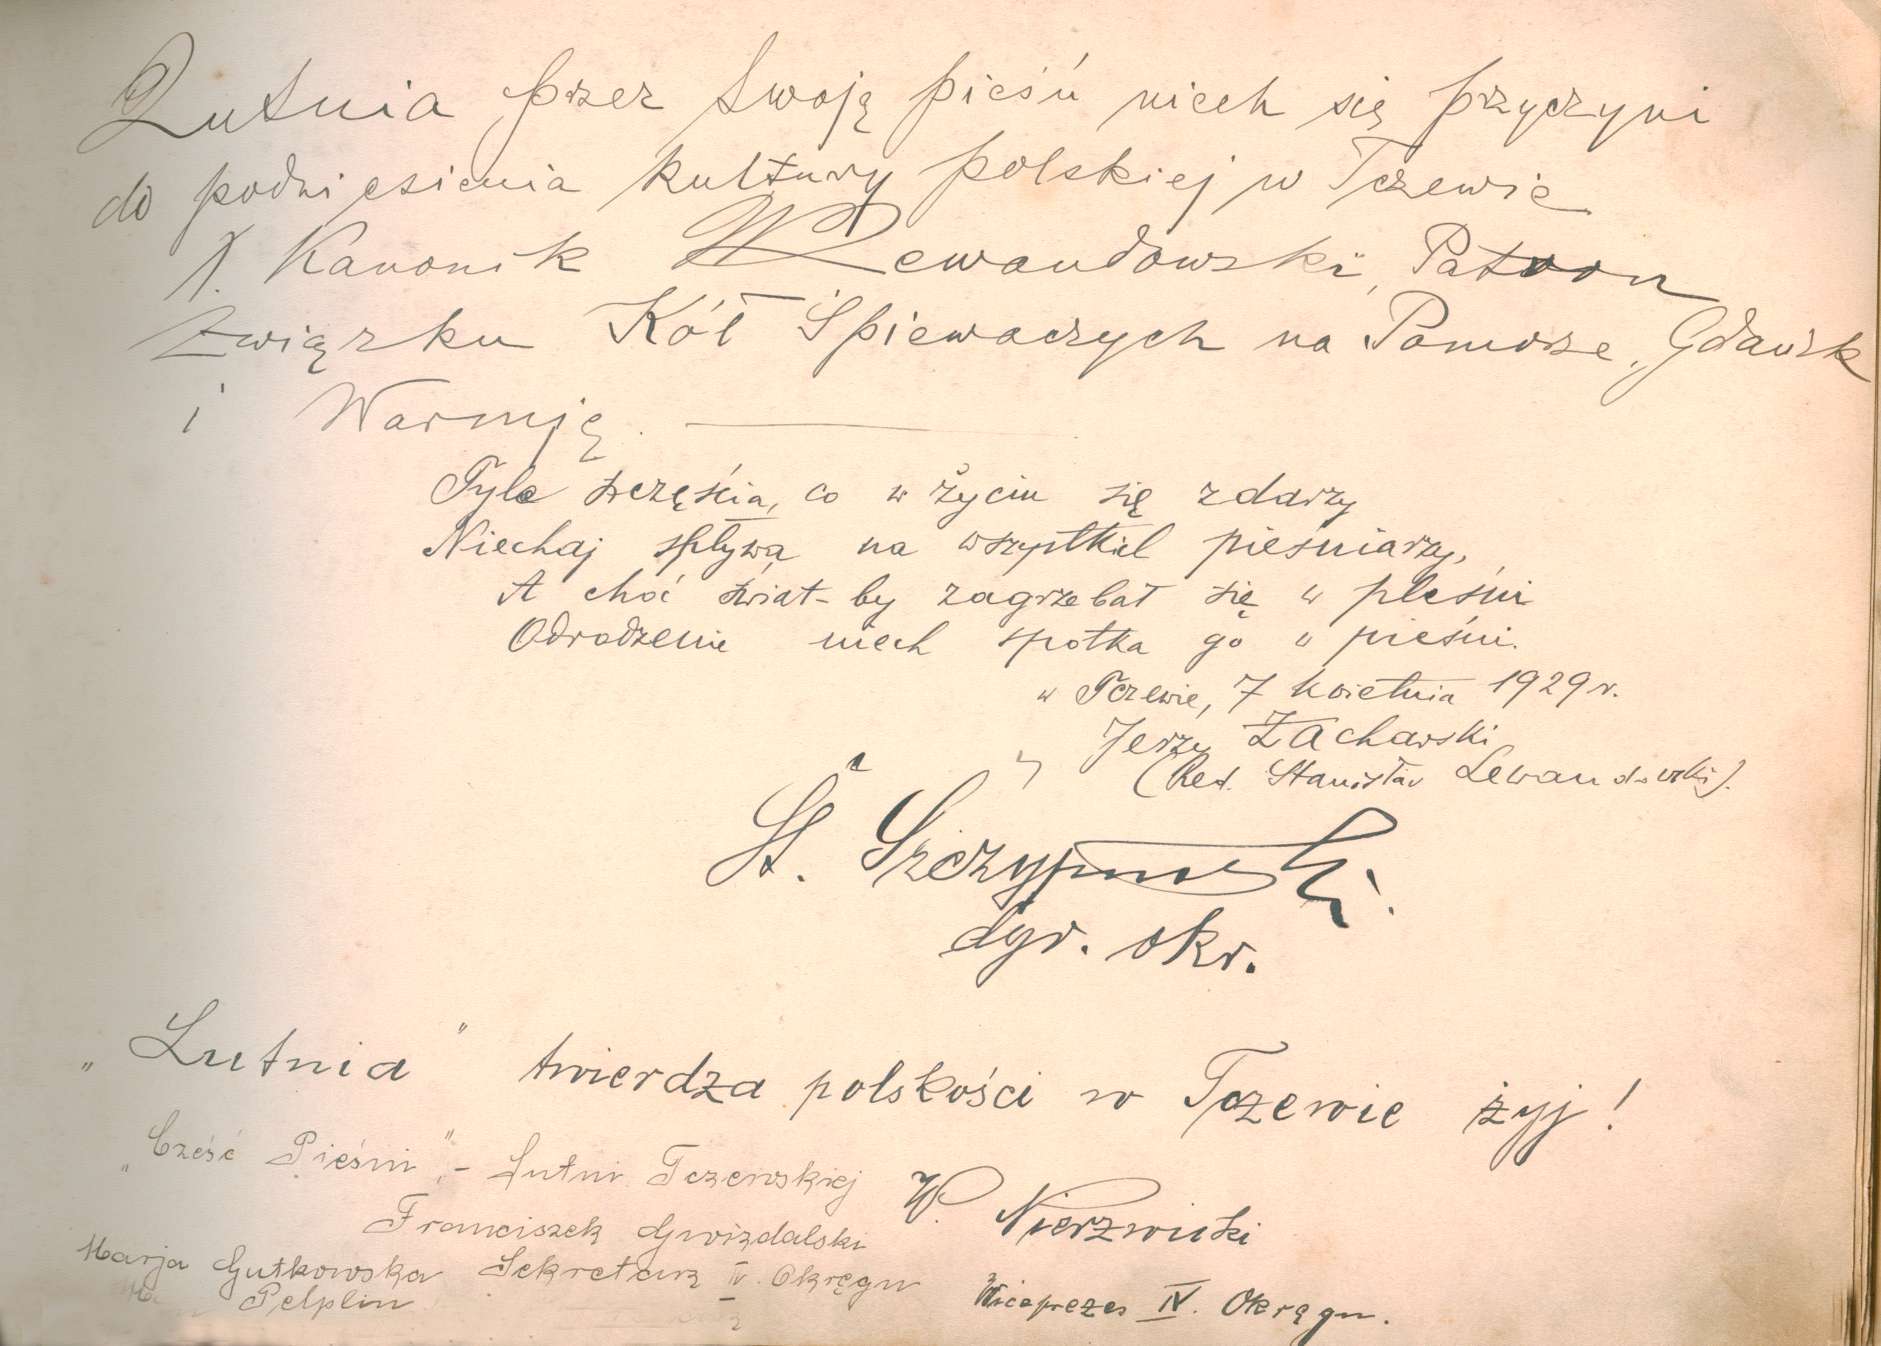 Lutnia przez swoją pieśń niech się przyczyni
do podniesienia kultury polskiej w Tczewie
X. Kanonik Lewandowski, Patron
Związku Kół Śpiewaczych na Pomorze, Gdańsk
i Warmję.
Tyle szczęścia, co w życiu się zdarzy
Niechaj spływa na wszystkich pieśniarzy,
A choć świat-by zagrzebał się w pleśni
Odrodzenie niech spotka go w pieśni.
w Tczewie, 7 kwietnia 1929 r.
Jerzy Żacharski
(Red. Stanisław Lewandowski).
St. Szczypnoski.
dyr. okr.
„Lutnia" twierdza polskości w Tczewie żyj!
„Cześć Pieśni", - Lutni Tczewskiej
W. Nierzwicki
Franciszek Gwizdalski
Marja Gutkowska Sekretarz IV. Okręgu
Pelplin
Wiceprezes IV. Okręgu.